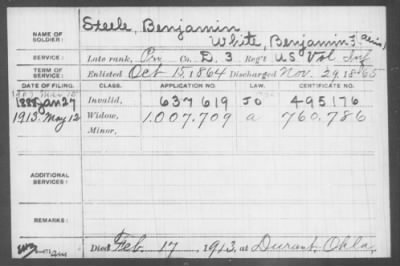 NAME OF SOLDIER: Steele, Benjamin
White, Benjamin F. (alias)
SERVICE: Late rank, Prv Co. D. 3 Reg't US Vol Inf
TERM OF SERVICE: Enlisted Oct 15, 1864 Discharged Nov. 29, 1865
DATE OF FILING. CLASS. APPLICATION NO. LAW. CERTIFICATE NO.
1888 Jan 27 Invalid, 637619 JO 495176
1913 May 12 Widow, 1.007.709 a 760.786
Minor,
ADDITIONAL SERVICES:
REMARKS:
Died Feb. 17, 1913, at Durant, Okla